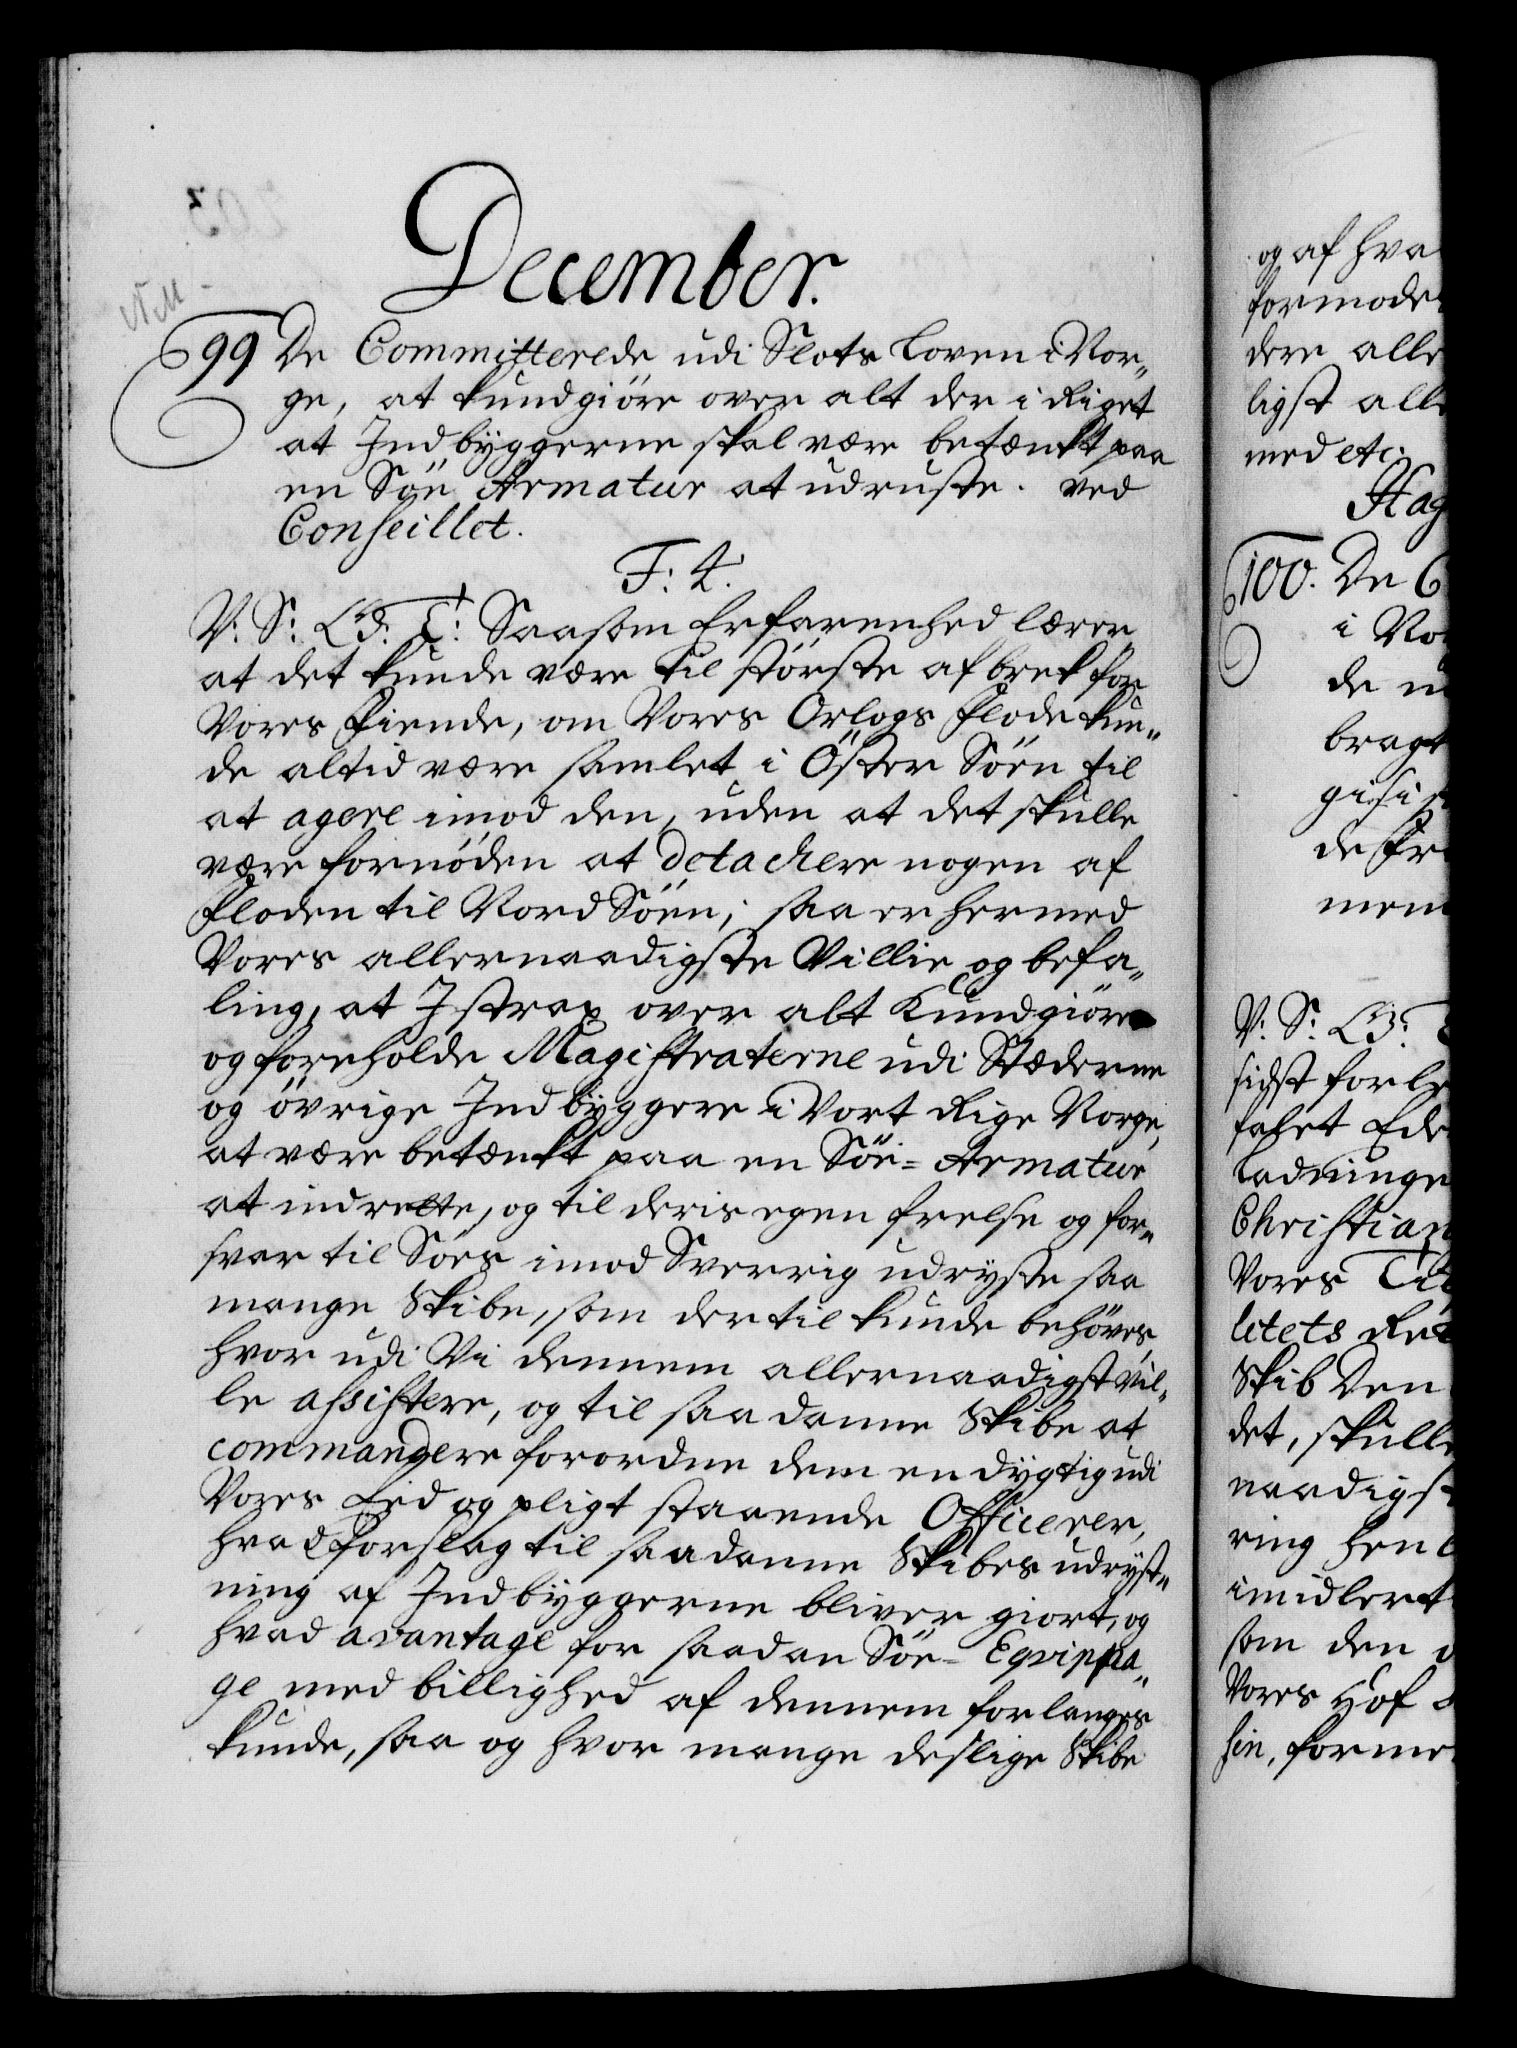 December.
NM
99 De Committerede udi Slots Loven i Nor„
ge, at kundgiöre over alt der i Riget
at Indbyggerne skal være betænkt paa
en Söe Armatur at udruste. ved
Conseillet.
F: 4.
V: S: G: T: Saasom Erfarenhed lærer,
at det kunde være til störste afbrek for
Vores Fiende, om Vores Orlogs Flode kun„
de altid være samlet i Öster Söen til
at agere imod den, uden at det skulle
være fornöden at detachere nogen af
Floden til Nord Söen; saa er hermed
Vores allernaadigste Villie og befa„
ling, at I strax over alt Kundgiöre
og foreholde Magistraterne udi Stæderne
og övrige Indbyggere i Vort Rige Norge,
at være betænkt paa en Söe-Armatur
at indrette, og til deris egen frelse og for„
svar til Söes imod Sverrig udryste saa
mange Skibe, som dertil kunde behöves,
hvor udi Vi dennem allernaadigst vil„
le assistere, og til saadanne Skibe at
commandere forordne dem en dygtig udi
Vores Eed og pligt staaende Officerer,
hvad forslag til saadanne Skibes udryst„
ning af Indbyggerne bliver giort, og
hvad avantage for saadan Söe-Eqvippa„
ge med billighed af dennem forlanges
kunde, saa og hvor mange deslige Skibe
og af hva
formode
dere alle
ligst alle
med etc.
Hag
100. De C
i No
de
bragt
de Fre
V: S: G:
sidst forle
falet Ede
Ladninge
Christian
Vores
letets Re
Skib Den
det, skulle
naadigst
ring hen
imidlert
som den
Vores Hof
sin, forme